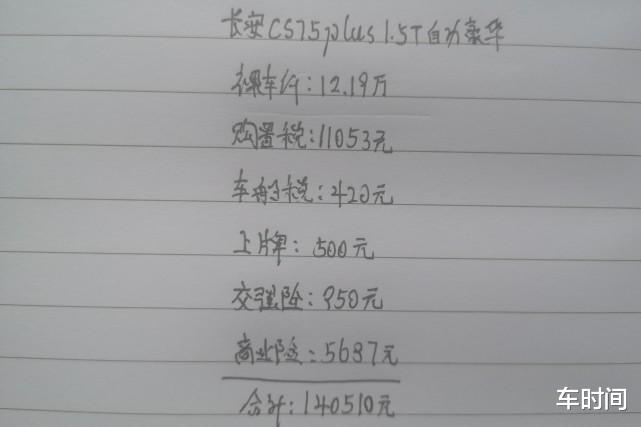 长安CS75plus1.5T自动豪华
裸车价:12.19万
购置税:11053元
车船税:420元
上牌:500元
交强险:950元
商业险:5687元
合计:140510元
车时间